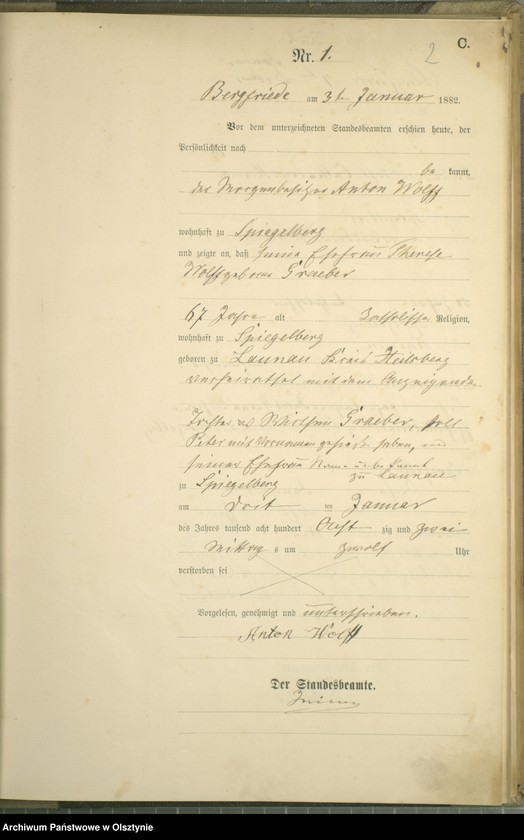 C.
2
Nr. 1.
Bergfriede am 31. Januar 1882.
Vor dem unterzeichneten Standesbeamten erschien heute, der
Persönlichkeit nach
be kannt,
der Anton Wolff
wohnhaft zu Spiegelberg
und zeigte an, daß seine Ehefrau Therese
Wolff geborene Graeber
67 Jahre alt katholischer Religion,
wohnhaft zu Spiegelberg
geboren zu Launau Kreis Heilsberg
verheirathet mit dem Anzeigenden
Tochter des Graeber, soll
Peter mit Vornamen geheißen haben, und
seiner Ehefrau Name unbekannt
zu Launau
zu Spiegelberg
am ten Januar
des Jahres tausend acht hundert Acht zig und zwei
Mittag s um zwölf Uhr
verstorben sei
Vorgelesen, genehmigt und unterschrieben.
Anton Wolff
Der Standesbeamte.
Archiwum Państwowe w Olsztynie